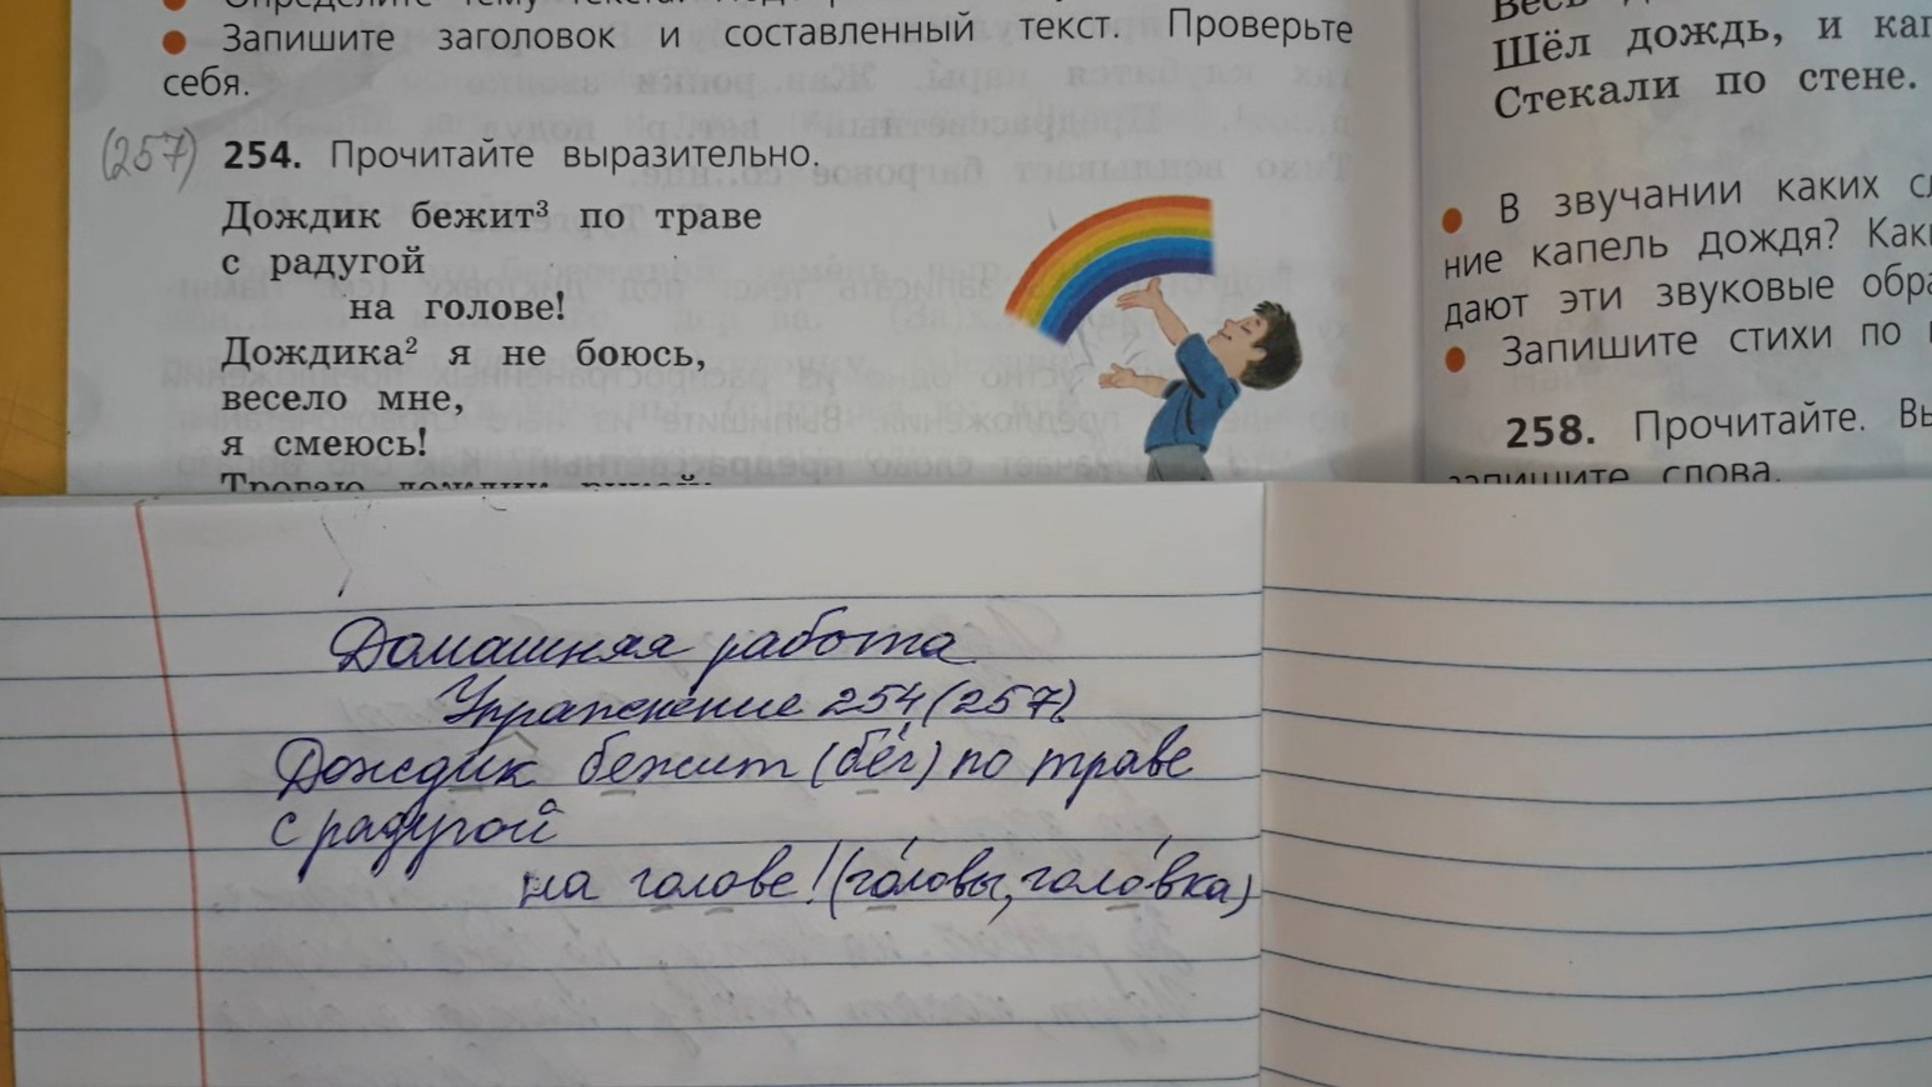 Запишите заголовок и составленный текст. Проверьте
себя.
(257) 254. Прочитайте выразительно.
Дождик бежит³ по траве
с радугой
на голове!
Дождика² я не боюсь,
весело мне,
я смеюсь!
Трогаю дождик рукой:
Весь
Шёл дождь, и кап
Стекали по стене.
В звучании каких
ние капель дождя? Как
дают эти звуковые обра
Запишите стихи по
258. Прочитайте. Вы
запишите слова.
Домашняя работа
Упражнение 254 (257).
Дождик бежит (бе́г) по траве
с радугой
на голове! (го́ловы, голо́вка)